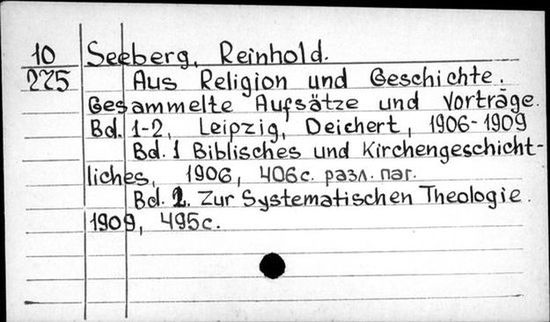 10 Seeberg, Reinhold.
225 Aus Religion und Geschichte.
Gesammelte Aufsätze und Vorträge.
Bd. 1-2, Leipzig, Deichert, 1906-1909
Bd. 1 Biblisches und Kirchengeschicht-
liches, 1906, 406с. разл. паг.
Bd. 2. Zur Systematischen Theologie.
1909, 495с.